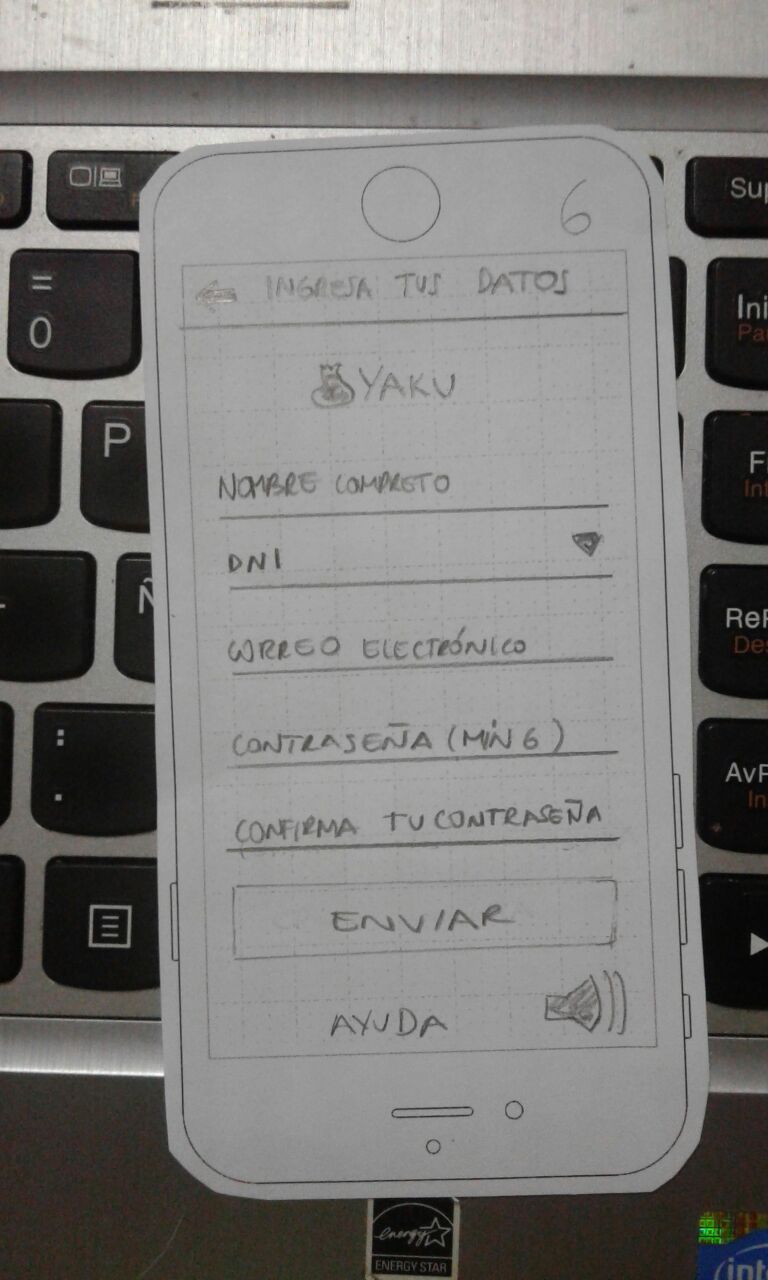 Sup
=
0
Ini
Pa
P
F
Int
Ñ
ReP
Des
:
.
AvP
In
6
← INGRESA TUS DATOS
YAKU
NOMBRE COMPLETO
DNI
CORREO ELECTRÓNICO
CONTRASEÑA (MÍN 6)
CONFIRMA TU CONTRASEÑA
ENVIAR
AYUDA
energy
ENERGY STAR
int